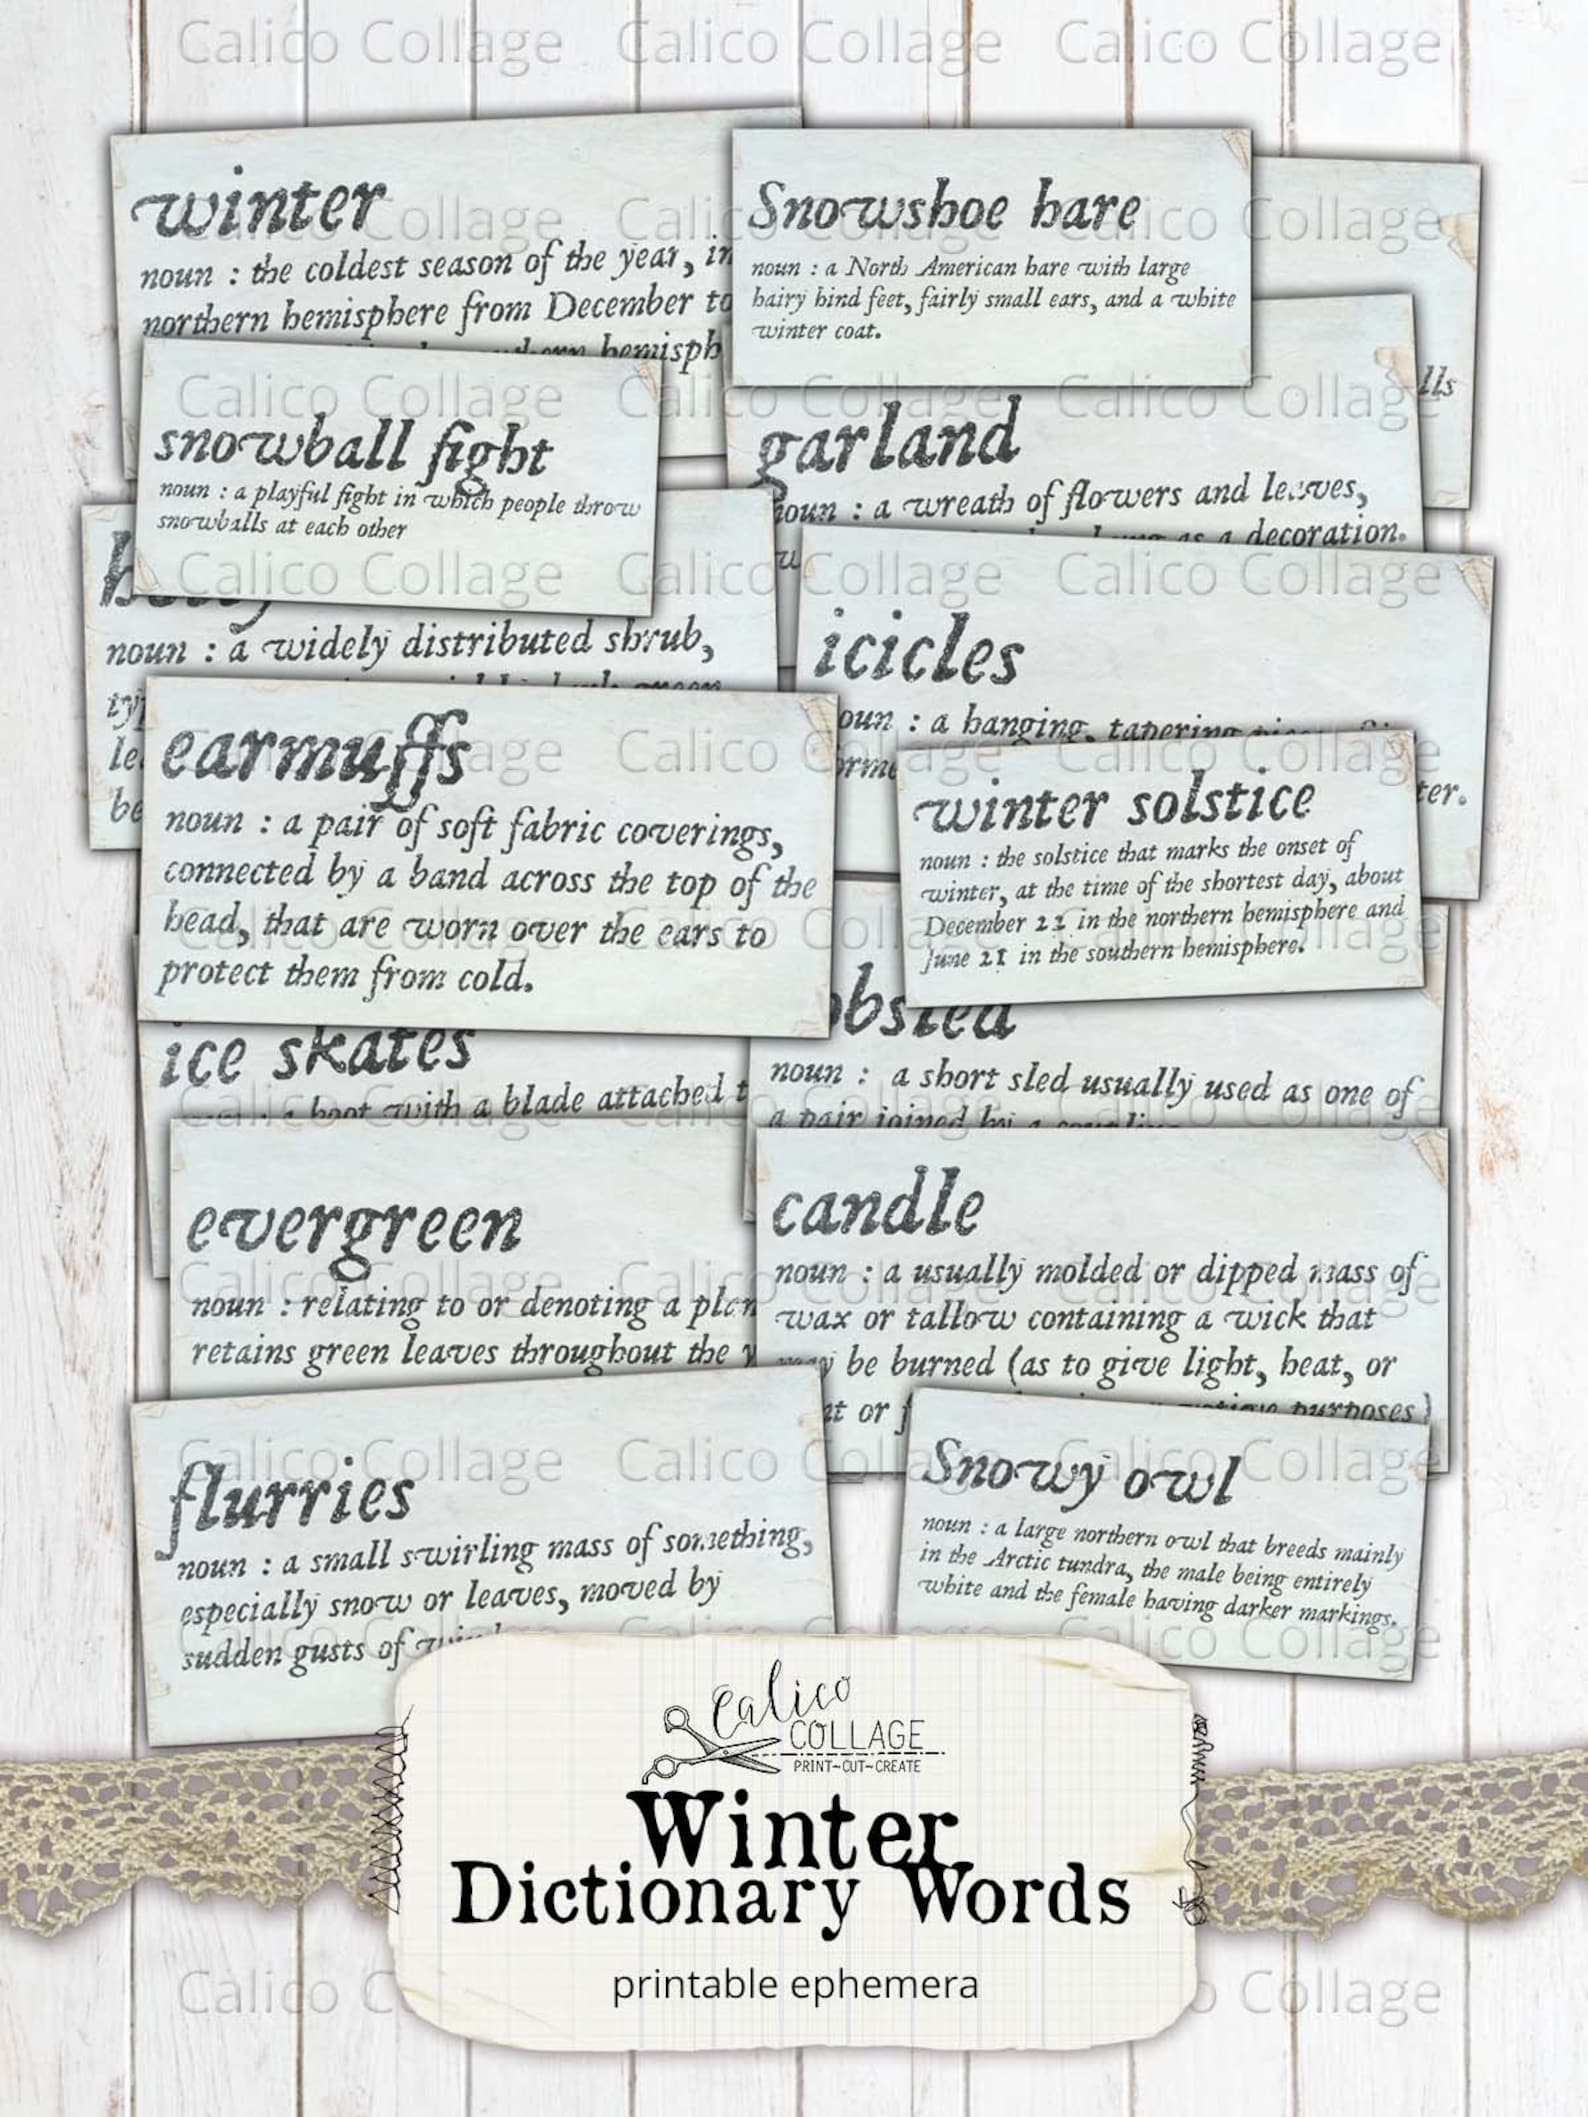 winter
noun : the coldest season of the year, in
northern hemisphere from December to
hemisph
Snowshoe hare
noun : a North American hare with large
hairy hind feet, fairly small ears, and a white
winter coat.
lls
snowball fight
noun : a playful fight in which people throw
snowballs at each other
garland
noun : a wreath of flowers and leaves,
as a decoration.
noun : a widely distributed shrub,
icicles
noun : a hanging, tapering
ter.
earmuffs
noun : a pair of soft fabric coverings,
connected by a band across the top of the
head, that are worn over the ears to
protect them from cold.
winter solstice
noun : the solstice that marks the onset of
winter, at the time of the shortest day, about
December 22 in the northern hemisphere and
June 21 in the southern hemisphere.
ice skates
noun : a boot with a blade attached t
obsled
noun : a short sled usually used as one of
a pair joined by a coupling
evergreen
noun : relating to or denoting a plan
retains green leaves throughout the y
candle
noun : a usually molded or dipped mass of
wax or tallow containing a wick that
may be burned (as to give light, heat, or
nt or f
purposes)
flurries
noun : a small swirling mass of something,
especially snow or leaves, moved by
sudden gusts of win
Snowy owl
noun : a large northern owl that breeds mainly
in the Arctic tundra, the male being entirely
white and the female having darker markings.
Calico
COLLAGE
PRINT~CUT~CREATE
Winter
Dictionary Words
printable ephemera
Calico Collage Calico Collage Calico Collage